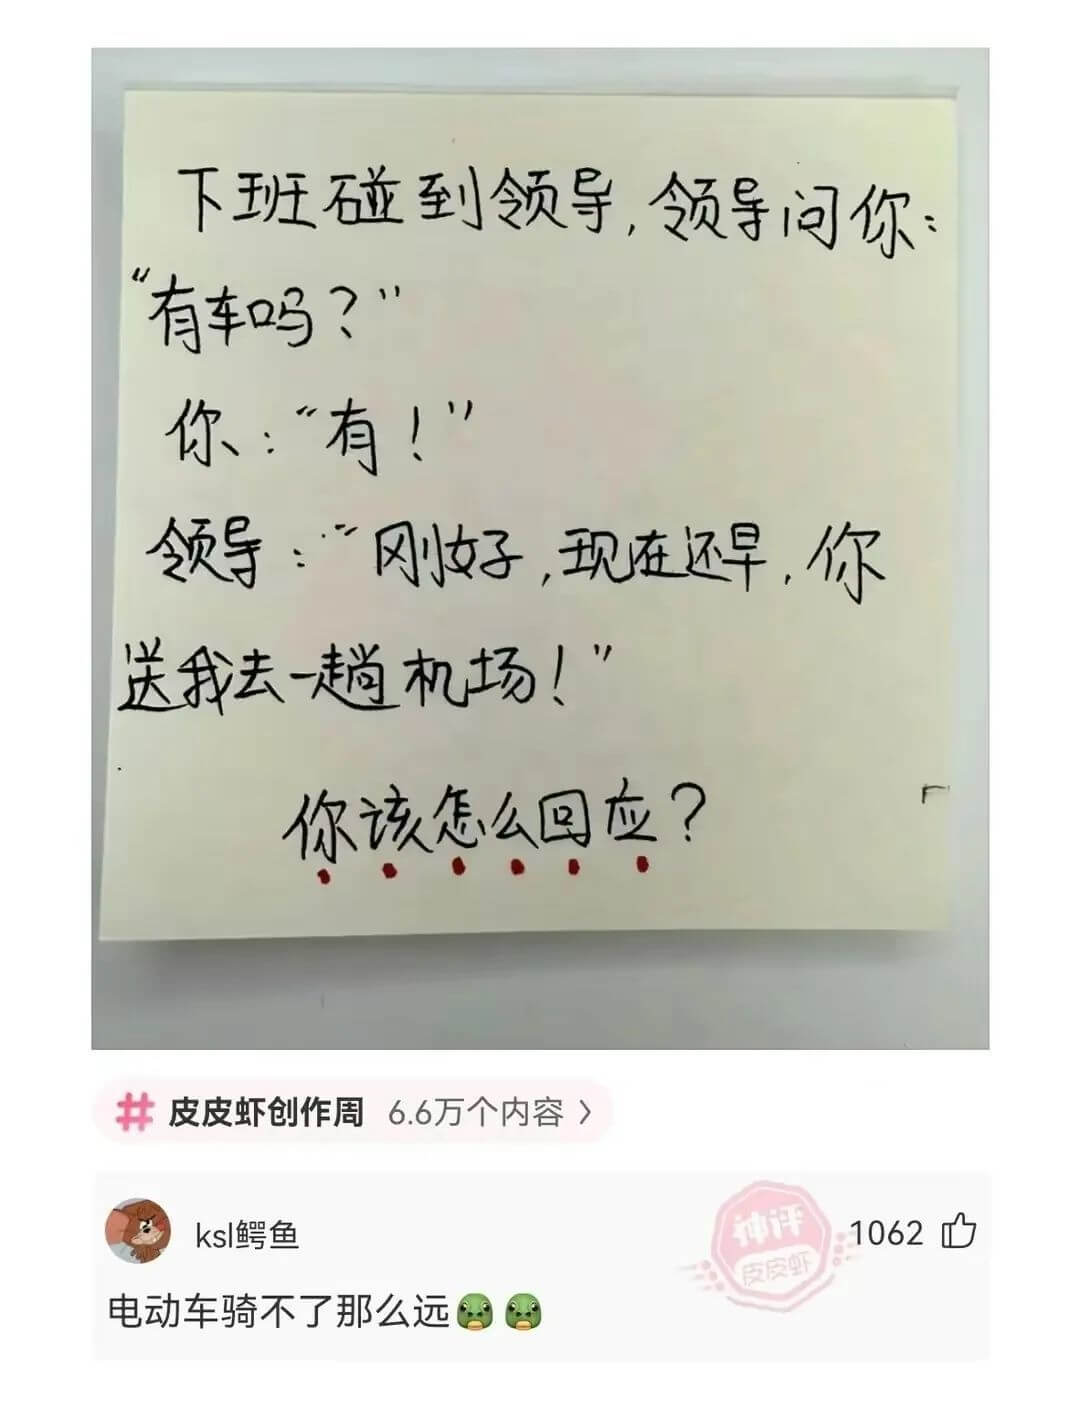 下班碰到领导,领导问你:
“有车吗?”
你:“有!”
领导:“刚好,现在还早,你
送我去一趟机场!”
你该怎么回应?
# 皮皮虾创作周 6.6万个内容 >
ksl鳄鱼
神评
皮皮虾
1062
电动车骑不了那么远